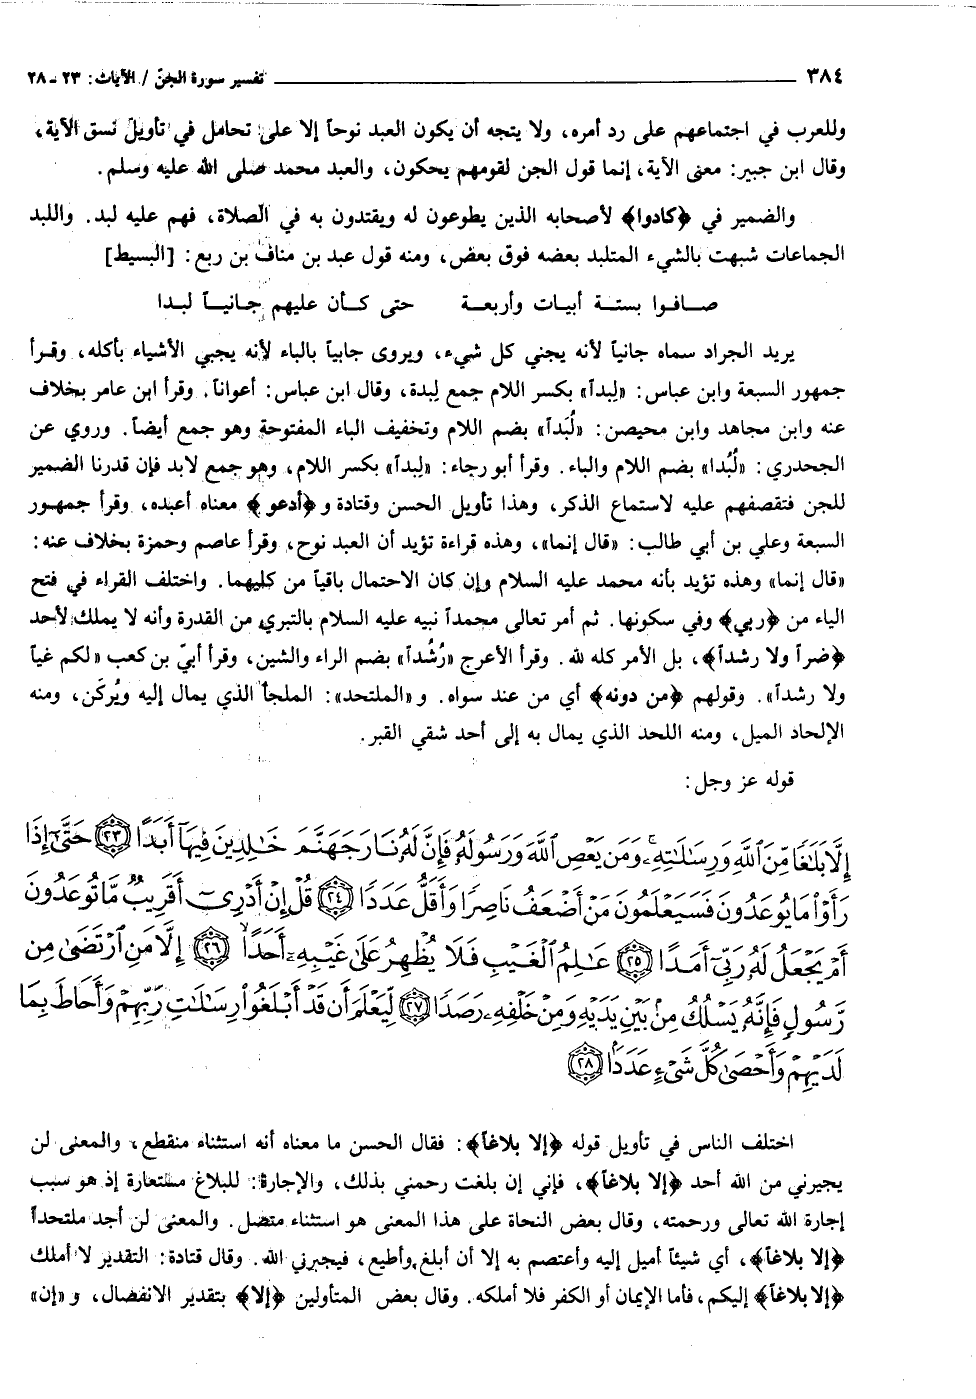 ٣٨٤ ــــــــــــــــ تفسير سورة الجنّ / الآيات: ٢٣ - ٢٨
وللعرب في اجتماعهم على رد أمره، ولا يتجه أن يكون العبد نوحاً إلا على تحامل في تأويل نسق الآية،
وقال ابن جبير: معنى الآية، إنما قول الجن لقومهم يحكون، والعبد محمد صلى الله عليه وسلم.
والضمير في ﴿كادوا﴾ لأصحابه الذين يطوعون له ويقتدون به في الصلاة، فهم عليه لبد. واللبد
الجماعات شبهت بالشيء المتلبد بعضه فوق بعض، ومنه قول عبد بن مناف بن ربع: [البسيط]
صافوا بستة أبيات وأربعة حتى كأن عليهم جانياً لبدا
يريد الجراد سماه جانياً لأنه يجني كل شيء، ويروى جابياً بالباء لأنه يجبي الأشياء بأكله، وقرأ
جمهور السبعة وابن عباس: «لِبداً» بكسر اللام جمع لِبدة، وقال ابن عباس: أعواناً. وقرأ ابن عامر بخلاف
عنه وابن مجاهد وابن محيصن: «لُبَداً» بضم اللام وتخفيف الباء المفتوحة وهو جمع أيضاً. وروي عن
الجحدري: «لُبُدا» بضم اللام والباء. وقرأ أبو رجاء: «لِبداً» بكسر اللام، وهو جمع لابد فإن قدرنا الضمير
للجن فتقصفهم عليه لاستماع الذكر، وهذا تأويل الحسن وقتادة و﴿أدعو﴾ معناه أعبده، وقرأ جمهور
السبعة وعلي بن أبي طالب: «قال إنما»، وهذه قراءة تؤيد أن العبد نوح، وقرأ عاصم وحمزة بخلاف عنه:
«قال إنما» وهذه تؤيد بأنه محمد عليه السلام وإن كان الاحتمال باقياً من كليهما. واختلف القراء في فتح
الياء من ﴿ربي﴾ وفي سكونها. ثم أمر تعالى محمداً نبيه عليه السلام بالتبري من القدرة وأنه لا يملك لأحد
﴿ضراً ولا رشداً﴾، بل الأمر كله لله. وقرأ الأعرج «رُشُداً» بضم الراء والشين، وقرأ أبيّ بن كعب «لكم غياً
ولا رشداً». وقولهم ﴿من دونه﴾ أي من عند سواه. و«الملتحد»: الملجأ الذي يمال إليه ويُركَن، ومنه
الإلحاد الميل، ومنه اللحد الذي يمال به إلى أحد شقي القبر.
قوله عز وجل:
إِلَّا بَلَاغًا مِّنَ اللَّهِ وَرِسَالَاتِهِ ۚ وَمَن يَعْصِ اللَّهَ وَرَسُولَهُ فَإِنَّ لَهُ نَارَ جَهَنَّمَ خَالِدِينَ فِيهَا أَبَدًا ﴿٢٣﴾ حَتَّىٰ إِذَا
رَأَوْا مَا يُوعَدُونَ فَسَيَعْلَمُونَ مَنْ أَضْعَفُ نَاصِرًا وَأَقَلُّ عَدَدًا ﴿٢٤﴾ قُلْ إِنْ أَدْرِي أَقَرِيبٌ مَّا تُوعَدُونَ
أَمْ يَجْعَلُ لَهُ رَبِّي أَمَدًا ﴿٢٥﴾ عَالِمُ الْغَيْبِ فَلَا يُظْهِرُ عَلَىٰ غَيْبِهِ أَحَدًا ﴿٢٦﴾ إِلَّا مَنِ ارْتَضَىٰ مِن
رَّسُولٍ فَإِنَّهُ يَسْلُكُ مِن بَيْنِ يَدَيْهِ وَمِنْ خَلْفِهِ رَصَدًا ﴿٢٧﴾ لِّيَعْلَمَ أَن قَدْ أَبْلَغُوا رِسَالَاتِ رَبِّهِمْ وَأَحَاطَ بِمَا
لَدَيْهِمْ وَأَحْصَىٰ كُلَّ شَيْءٍ عَدَدًا ﴿٢٨﴾
اختلف الناس في تأويل قوله ﴿إلا بلاغاً﴾: فقال الحسن ما معناه أنه استثناء منقطع، والمعنى لن
يجيرني من الله أحد ﴿إلا بلاغاً﴾، فإني إن بلغت رحمني بذلك، والإجارة: للبلاغ مستعارة إذ هو سبب
إجارة الله تعالى ورحمته، وقال بعض النحاة على هذا المعنى هو استثناء متصل. والمعنى لن أجد ملتحداً
﴿إلا بلاغاً﴾، أي شيئاً أميل إليه وأعتصم به إلا أن أبلغ وأطيع، فيجيرني الله. وقال قتادة: التقدير لا أملك
﴿إلا بلاغاً﴾ إليكم، فأما الإيمان أو الكفر فلا أملكه. وقال بعض المتأولين ﴿إلا﴾ بتقدير الانفصال، و«إن»